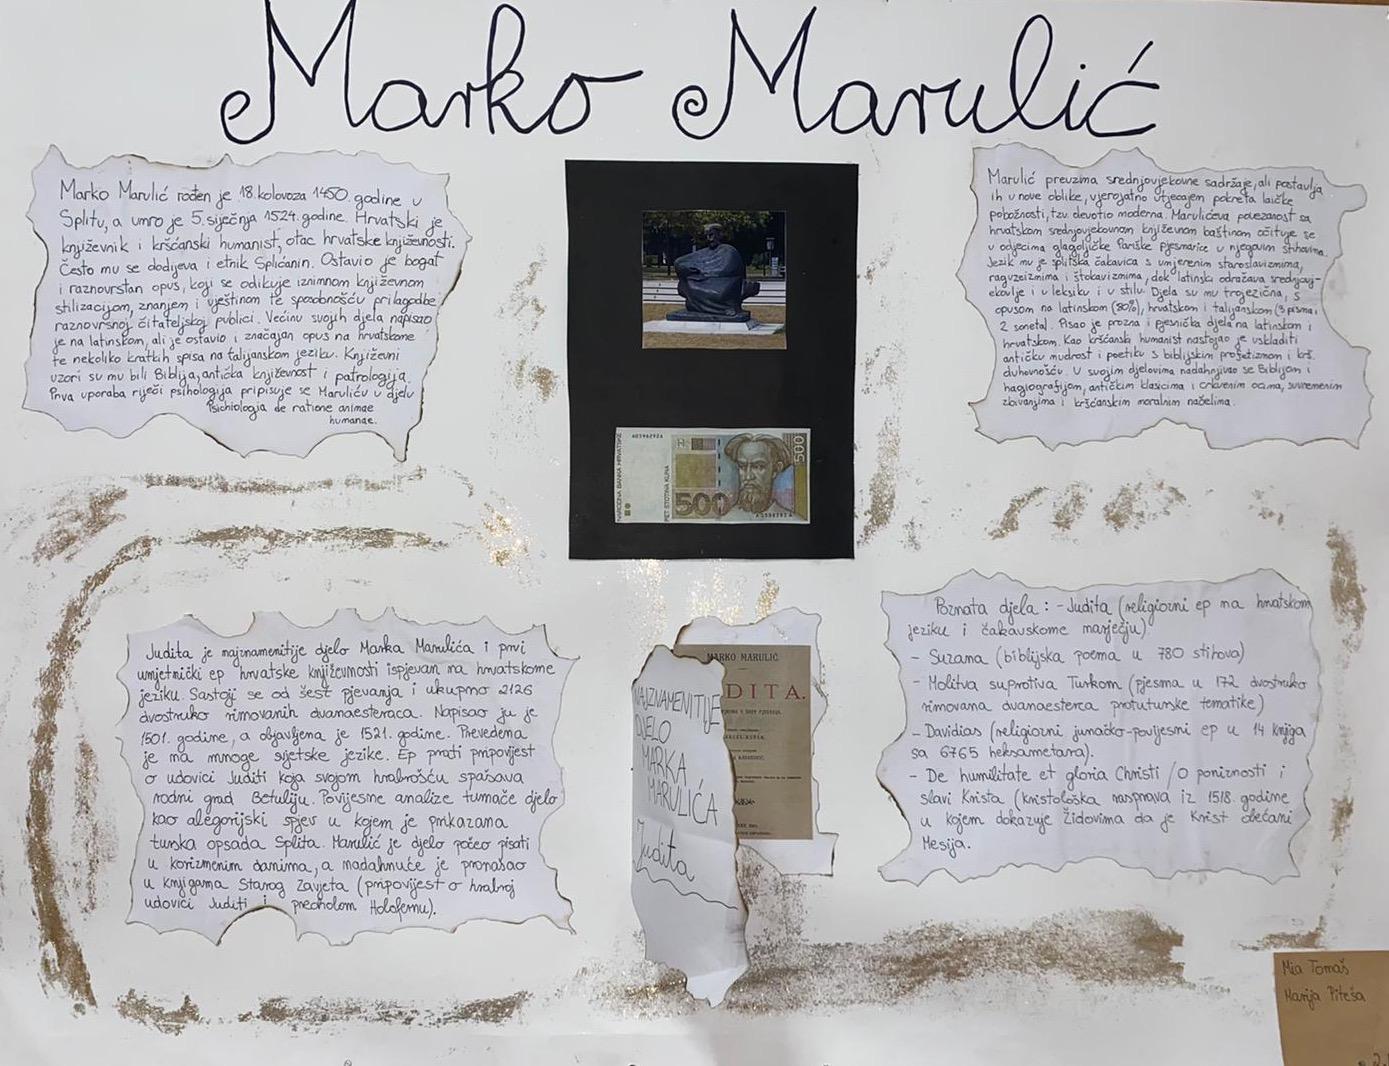 Marko Marulić
Marko Marulić rođen je 18. kolovoza 1450. godine u
Splitu, a umro je 5. siječnja 1524. godine. Hrvatski je
književnik i kršćanski humanist, otac hrvatske književnosti.
Često mu se dodijeva i etnik Splićanin. Ostavio je bogat
i raznovrstan opus, koji se odikuje iznimnom književnom
stilizacijom, znanjem i vještinom te sposobnošću prilagodbe
raznovrsnoj čitateljskoj publici. Većinu svojih djela napisao
je na latinskom, ali je ostavio i značajan opus na hrvatskome
te nekoliko kratkih spisa na talijanskom jeziku. Književni
uzori su mu bili Biblija, antička književnost i patrologija.
Prva uporaba riječi psihologija pripisuje se Maruliću u djelu
Psichiologia de ratione animae
humanae.
NARODNA BANKA HRVATSKE
A0396292A
PET STOTINA KUNA
500
500
A0396292A
Marulić preuzima srednjovjekovne sadržaje, ali postavlja
ih u nove oblike, vjerojatno utjecajem pokreta laičke
pobožnosti, tzv devotio moderna. Marulićeva povezanost sa
hrvatskom srednjovjekovnom književnom baštinom očituje se
u odjecima glagoljičke Pariške pjesmarice u njegovim stihovima.
Jezik mu je splitska čakavica s umjerenim staroslavizmima,
raguzeizmima i štokavizmima, dok latinski odražava srednjovj-
ekovlje i u leksiku i u stilu. Djela su mu trojezična, s
opusom na latinskom (80%), hrvatskom i talijanskom (3 pisma i
2 soneta). Pisao je prozna i pjesnička djela na latinskom i
hrvatskom. Kao kršćanski humanist nastojao je uskladiti
antičku mudrost i poetiku s biblijskim profetizmom i krš.
duhovnošću. U svojim djelovima nadahnjivao se Biblijom i
hagiografijom, antičkim klasicima i crkvenim ocima, suvremenim
zbivanjima i kršćanskim moralnim načelima.
Judita je najznamenitije djelo Marka Marulića i prvi
umjetnički ep hrvatske književnosti ispjevan na hrvatskome
jeziku. Sastoji se od šest pjevanja i ukupno 2126
dvostruko rimovanih dvanaesteraca. Napisao ju je
1501. godine, a objavljena je 1521. godine. Prevedena
je na mnoge svjetske jezike. Ep prati pripovijest
o udovici Juditi koja svojom hrabrošću spašava
rodni grad Betuliju. Povijesne analize tumače djelo
kao alegorijski spjev u kojem je prikazana
turska opsada Splita. Marulić je djelo počeo pisati
u korizmenim danima, a nadahnuće je pronašao
u knjigama Starog Zavjeta (pripovijest o hrabroj
udovici Juditi i preoholom Holofernu).
NAJZNAMENITIJE
DJELO
MARKA
MARULIĆA
Judita
MARKO MARULIĆ
DITA.
Poznata djela : - Judita (religiozni ep na hrvatskom
jeziku i čakavskome narječju)
- Suzana (biblijska poema u 780 stihova)
- Molitva suprotiva Turkom (pjesma u 172 dvostruko
rimovana dvanaesterca protuturske tematike)
- Davidias (religiozni junačko-povijesni ep u 14 knjiga
sa 6765 heksametara).
- De humilitate et gloria Christi / O poniznosti i
slavi Krista (kristološka rasprava iz 1518. godine
u kojem dokazuje Židovima da je Krist obećani
Mesija.
Mia Tomaš
Marija Piteša